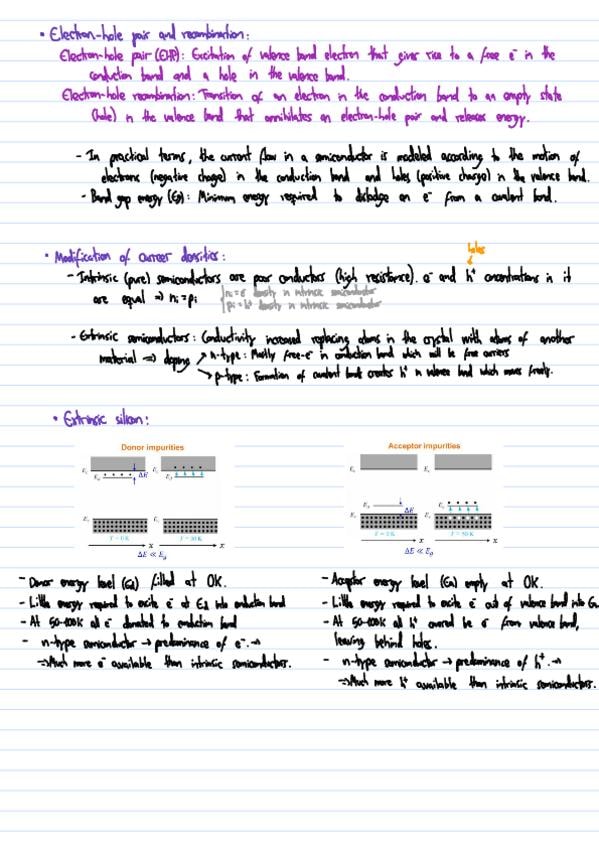 • Electron-hole pair and recombination:
Electron-hole pair (EHP): Excitation of valence band electron that gives rise to a free e⁻ in the
conduction band and a hole in the valence band.
Electron-hole recombination: Transition of an electron in the conduction band to an empty state
(hole) in the valence band that annihilates an electron-hole pair and releases energy.
- In practical terms, the current flow in a semiconductor is modeled according to the motion of
electrons (negative charge) in the conduction band and holes (positive charge) in the valence band.
- Band gap energy (Eg): Minimum energy required to dislodge an e⁻ from a covalent bond.
holes
• Modification of carrier densities:
- Intrinsic (pure) semiconductors are poor conductors (high resistance). e⁻ and h⁺ concentrations in it
are equal ⇒ ni = pi
ni = e⁻ density in intrinsic semiconductor
pi = h⁺ density in intrinsic semiconductor
- Extrinsic semiconductors: Conductivity increased replacing atoms in the crystal with atoms of another
material ⇒ doping
n-type: Mostly free-e⁻ in conduction band which will be free carriers
p-type: Formation of covalent bonds creates h⁺ in valence band which moves freely.
• Extrinsic silicon:
Donor impurities
Ec Ed ΔE Ec Ed
Ev Ev
T = 0 K T = 50 K
x x
ΔE ≪ Eg
- Donor energy level (Ed) filled at 0K.
- Little energy required to excite e⁻ at Ed into conduction band
- At 50-100K all e⁻ donated to conduction band
- n-type semiconductor → predominance of e⁻. →
⇒ Much more e⁻ available than intrinsic semiconductors.
Acceptor impurities
Ec Ec
Ea ΔE Ea
Ev Ev
T = 0 K T = 50 K
x x
ΔE ≪ Eg
- Acceptor energy level (Ea) empty at 0K.
- Little energy required to excite e⁻ out of valence band into Ea
- At 50-100K all h⁺ by e⁻ from valence band,
leaving behind holes.
- n-type semiconductor → predominance of h⁺. →
⇒ Much more h⁺ available than intrinsic semiconductors.